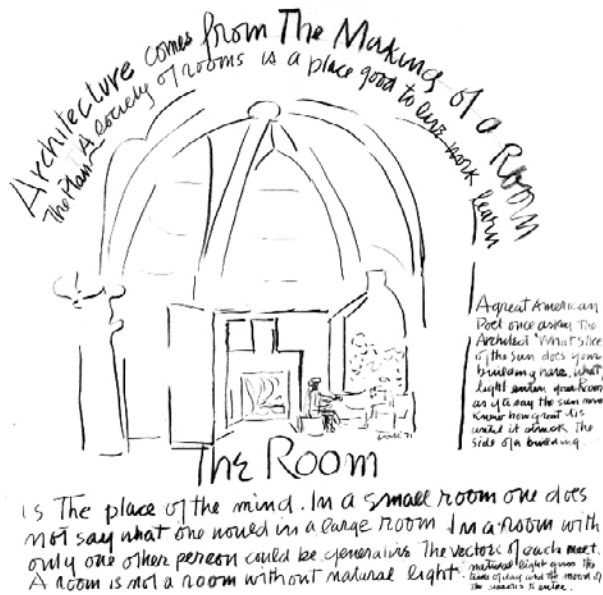 Architecture comes from The Making of a Room
The Plan A society of rooms is a place good to live work learn
A great American
Poet once asked the
Architect 'What slice
of the sun does your
building have. What
light enters your Room
as if to say the sun never
knew how great it is
until it struck the
side of a building.
The Room
is The place of the mind. In a small room one does
not say what one would in a large room In a room with
only one other person could be generative The vectors of each meet.
A room is not a room without natural light. natural light gives the
time of day and the mood of
the seasons to enter.